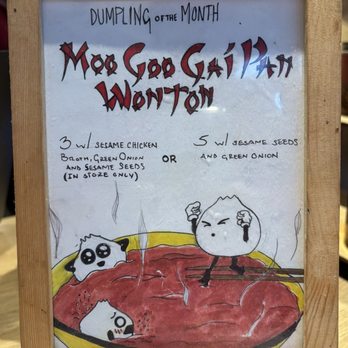 DUMPLING OF THE MONTH
MOO GOO GAI PAN
WONTON
3 w/ SESAME CHICKEN
BROTH, GREEN ONION
AND SESAME SEEDS
(IN STORE ONLY)
OR
5 w/ SESAME SEEDS
AND GREEN ONION